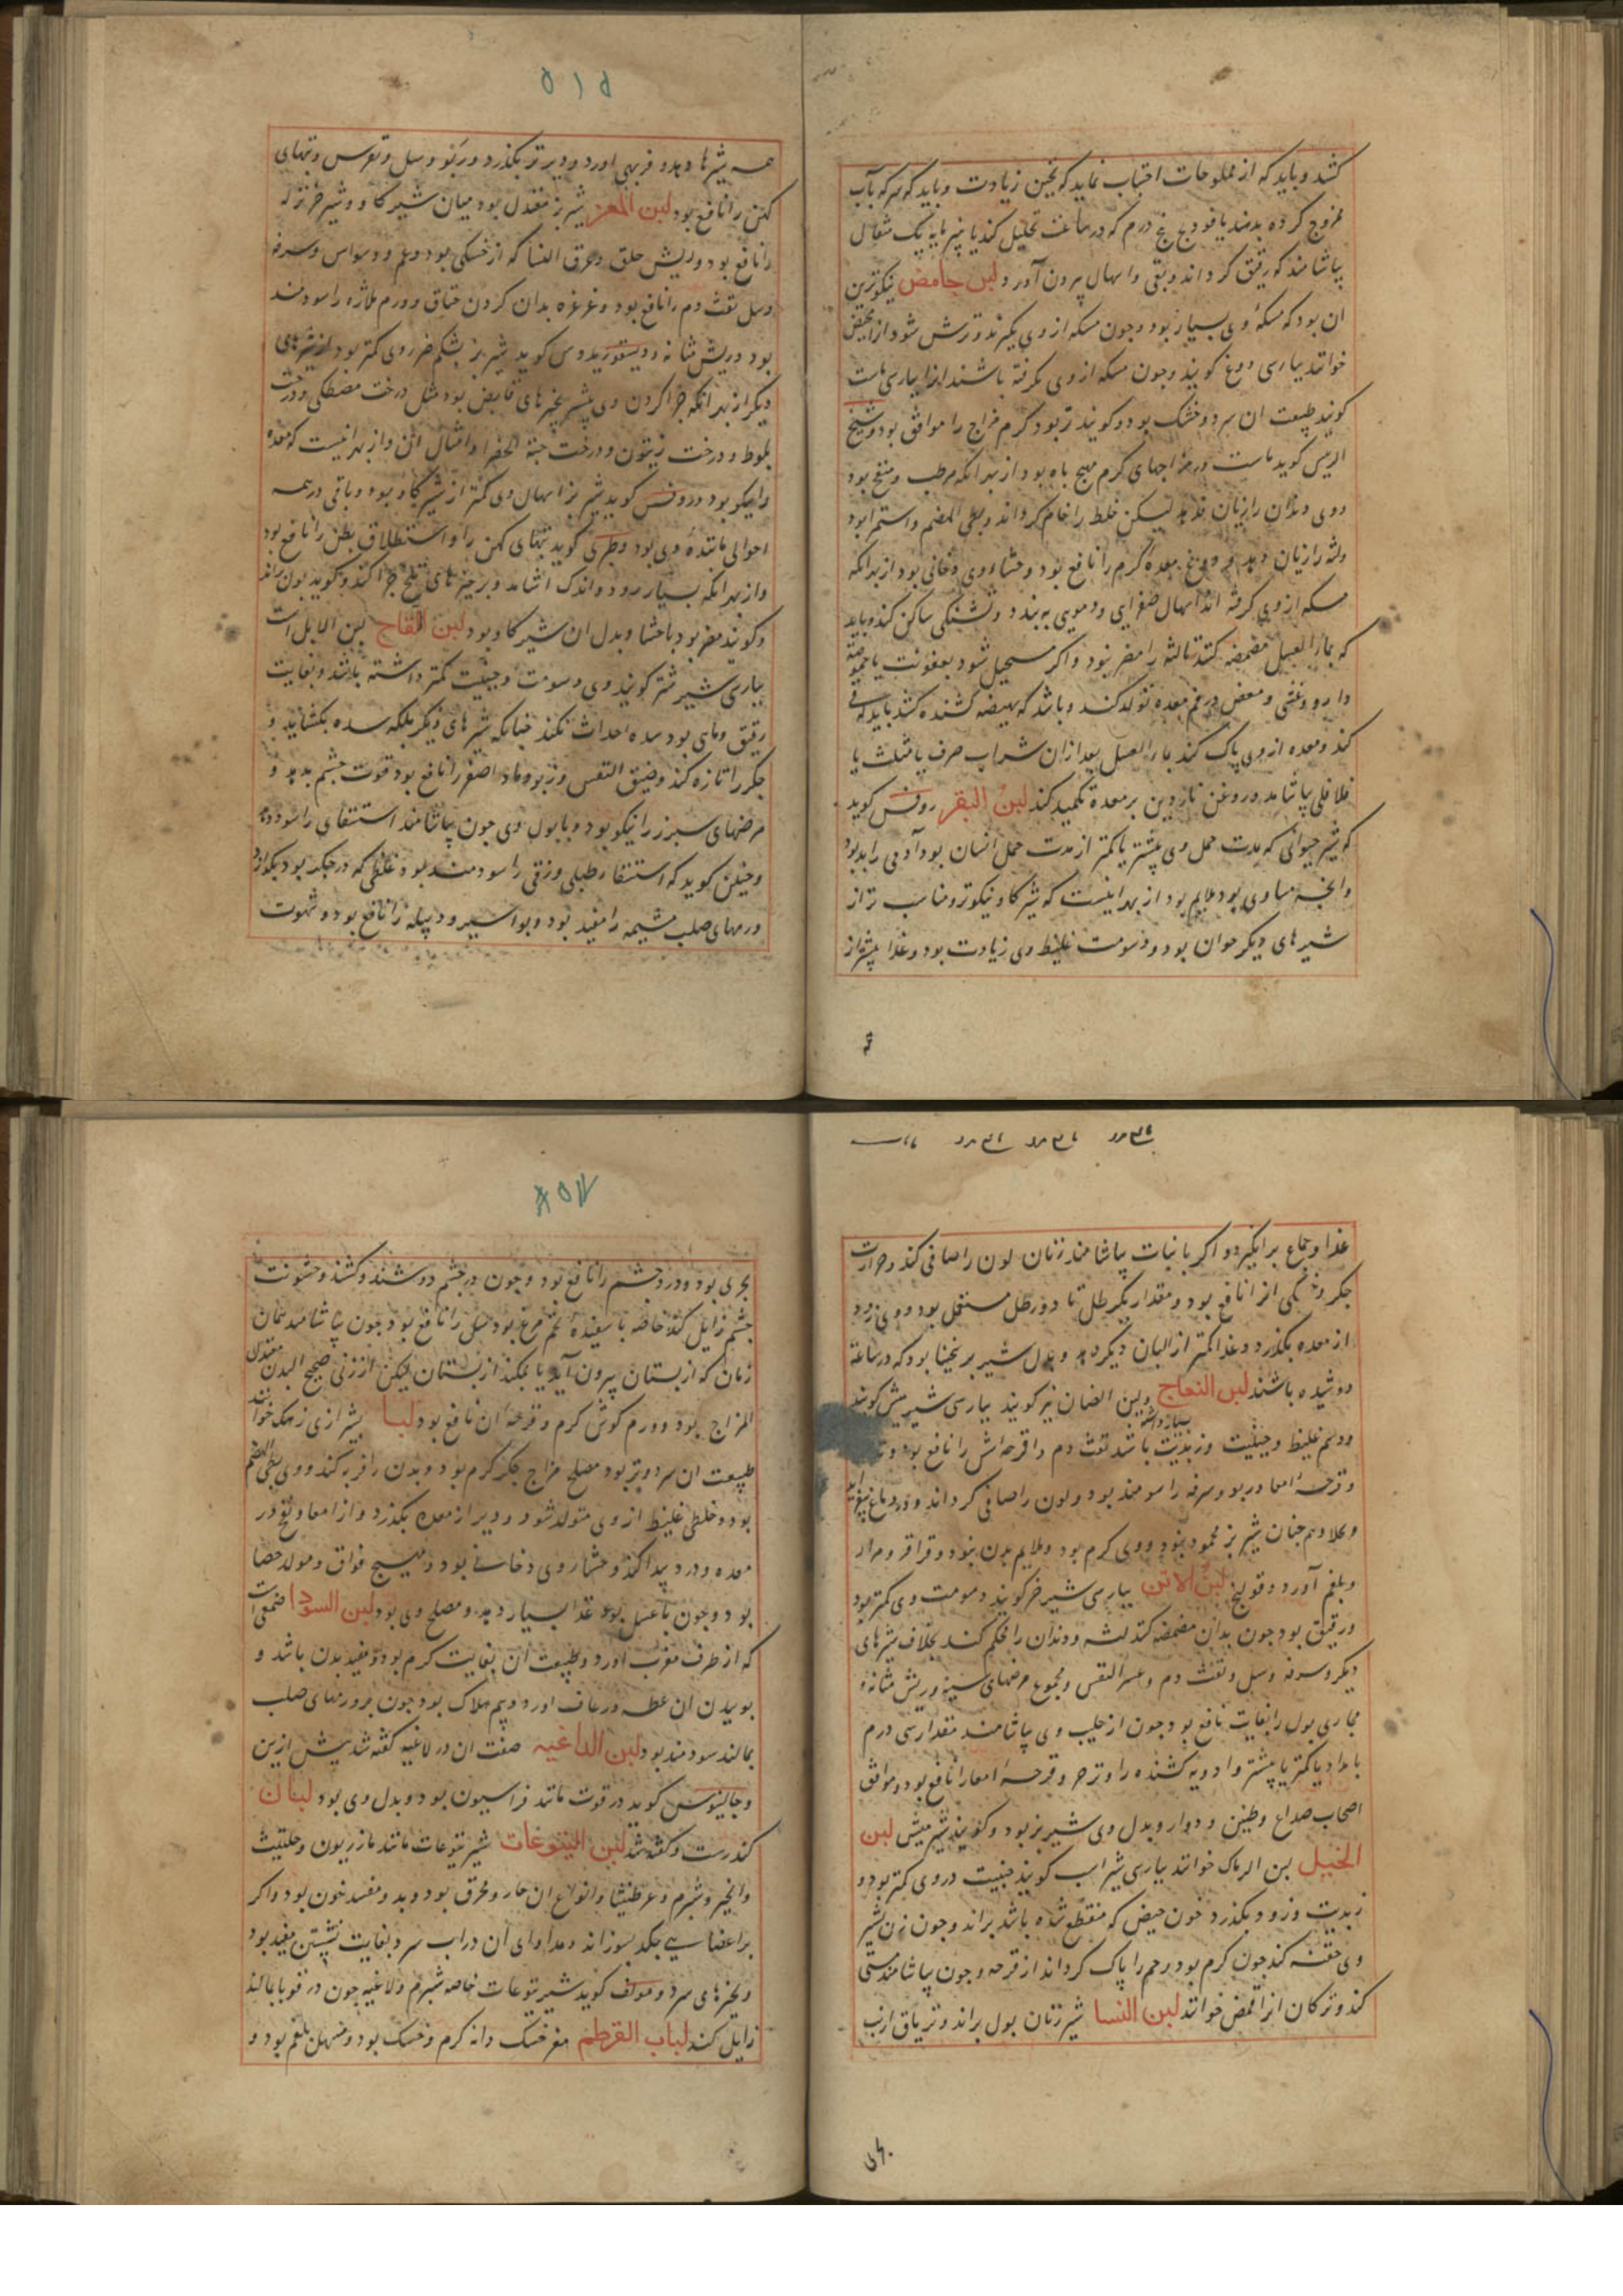 کنند و باید که از مملوحات اجتناب نماید که تجبن زیادت و باید که سرکه بآب
ممزوج کرده بدهند یا فودنج پنج درم که در ساعت تحلیل کند یا پنیر مایه یک مثقال
بیاشامند که رقیق گرداند و بقی و اسهال بیرون آورد لبن حامض نیکوترین
ان بود که مسکهٔ وی بسیار بود و چون مسکه از وی بگیرند و ترش شود انرا مخیض
خوانند بپارسی دوغ گویند و چون مسکه از وی نگرفته باشند انرا بپارسی ماست
گویند طبیعت ان سرد و خشک بود و گویند تر بود گرم مزاج را موافق بود و شیخ
الریس گوید ماست در مزاجهای گرم مهیج باه بود از بهر انکه مرطب و منفخ بود
و وی دندان را زیان ندهد لیکن خلط را خام گرداند و بطی الهضم و استمرا بود
و لثه را زیان دهد و دوغ معدهٔ گرم را نافع بود و جشاء وی دخانی بود از بهر انکه
مسکه از وی گرفته اند اسهال صفرایی و دمویی ببندد و تشنگی ساکن کند و باید
که بماء العسل مضمضه کنند تا لثه را مضر نبود و اگر مستحیل شود بعفونت یا حموضة
دارو و غشی و مغص در فم معده تولد کند و باشد که بهیضه کشنده کشد باید که قی
کند و معده از وی پاک کند بماء العسل بعد از ان شراب صرف یا مثلث یا
فلافلی بیاشامد و روغن ناردین بر معده تکمید کند لبن البقر روفس گوید
که شیر حیوانی که مدت حمل وی بیشتر یا کمتر از مدت حمل انسان بود آدمی را بد بود
و انچه مساوی بود ملایم بود از بهر اینست که شیر گاو نیکوتر و مناسب تر از
شیرهای دیگر حیوان بود و دسومت غلیظ وی زیادت بود و غذا بیشتر از
۵۱۵
همه شیرها دهد و فربهی اورد و دیرتر بگذرد و ربو و سل و نقرس و تبهای
کهن را نافع بود لبن المعز شیر بز معتدل بود میان شیر گاو و شیر خر نزله
را نافع بود و ریش حلق و عرق النسا که از خشکی بود و غم و وسواس و سرفه
و سل و نفث دم را نافع بود و غرغره بدان کردن خناق و ورم ملازه را سودمند
بود و ریش مثانه و دیسقوریدوس گوید شیر بز بشکم ضرر وی کمتر بود از شیرهای
دیگر از بهر انکه چرا کردن وی بیشتر بچیزهای قابض بود مثل درخت مصطکی و درخت
بلوط و درخت زیتون و درخت حبة الخضرا و امثال ان و از بهر انیست که معده
را نیکو بود و روفس گوید شیر بز اسهال وی کمتر از شیر گاو بود و باقی در همه
احوالی مانندهٔ وی بود و طبری گوید تبهای کهن را و استطلاق بطن را نافع بود
و از بهر انکه بسیار رود و اندک اشامد و بر چیزهای تلخ چرا کند و گوید بدن
و گویند مضر بود باحشا و بدل ان شیر گاو بود لبن اللقاح لبن الابل است
بپارسی شیر شتر گویند وی دسومت و جبنیت کمتر داشته باشد و بغایت
رقیق و مایی بود سده احداث نکند چنانکه شیرهای دیگر بلکه سده بگشاید و
جگر را تازه کند و ضیق النفس و ربو و ماء اصفر را نافع بود قوت جشم بدهد و
مرضهای سپرز را نیکو بود و با بول وی چون بیاشامند استسقای را سود دهد
و حنین گوید که استسقاء طبلی و زقی را سودمند بود و غلظی که در جگر بود بگدازد
و رمهای صلب مشیمه را مفید بود و بواسیر و دبیله را نافع بود و شهوت
غذا و جماع برانگیزد و اگر با نبات بیاشامند زنان لون را صافی کند و حرارت
جگر و خشکی انرا نافع بود و مقدار یکرطل تا دو رطل مستعمل بود و وی زود
از معده بگذرد و غذا کمتر از البان دیگر دهد و بدل شیر برنخینا بود که در ساعة
دوشیده باشند لبن النعاج و لبن الضان نیز گویند بپارسی شیر میش گویند
و دسم غلیظ و جبنیت و زبدیت بسیار داشته باشد نفث دم و قرحه اش را نافع بود
و قرحهٔ امعا و ربو و سرفه را سودمند بود و لون را صافی گرداند و در دماغ بیفزاید
و محلا وهم چنان شیر بز محمود نبود و وی گرم بود و ملایم بدن نبود و قراقر و مرار
و بلغم آورد و قولنج لبن الاتن بپارسی شیر خر گویند دسومت وی کمتر بود
و رقیق بود چون بدان مضمضه کنند لثه و دندان را محکم کند بخلاف شیرهای
دیگر و سرفه و سل و نفث دم و عسر النفس و مجموع مرضهای سینه و ریش مثانه و
مجاری بول را بغایت نافع بود چون از حلیب وی بیاشامند مقدار سی درم
بامداد یا کمتر یا بیشتر و ادویه کشنده را و زحیر و قرحه امعا را نافع بود و موافق
اصحاب صداع و طنین و دوار و بدل وی شیر بز بود و گویند شیر میش لبن
الخیل لبن الرماک خوانند بپارسی شیر اسب گویند جبنیت در وی کمتر بود و
زبدیت و زود بگذرد خون حیض که منقطع شده باشد براند و چون زن بشیر
وی حقنه کند چون گرم بود رحم را پاک گرداند از قرحه و چون بیاشامند مستی
کند و ترکان انرا قمض خوانند لبن النسا شیر زنان بول براند و تریاق ارنب
بحری بود و درد جشم را نافع بود و چون در جشم دوشند و کشند و خشونت
جشم زایل کند خاصه با سفیدهٔ تخم مرغ بود سل را نافع بود چون بیاشامند همان
زمان که از پستان بیرون آید یا بمکند از پستان لیکن از زنی صحیح البدن معتدل
المزاج بود و ورم گوش گرم و قرحهٔ ان نافع بود لبا بشیرازی زهک خوانند
طبیعت ان سرد و تر بود مصلح مزاج جگر گرم بود و بدن را فربه کند و وی بطی الهضم
بود و خلطی غلیظ از وی متولد شود و دیر از معده بگذرد و از امعا و نفخ در
معده و درد پیدا کند و جشاء وی دخانی بود و مهیج فواق و مولد حصا
بود و چون با عسل بود غذا بسیار دهد و مصلح وی بود لبن السودا صمغی است
که از طرف مغرب اورند و طبیعت ان بغایت گرم بود و مفید بدن باشد و
بوییدن ان عطسه و رعاف اورد و بیم هلاک بود چون بر ورمهای صلب
بمالند سودمند بود لبن الداغیه صفت ان در لاغیه گفته شد پیش ازین
و جالینوس گوید در قوت مانند فراسیون بود و بدل وی بود لبان
کندرست و گفته شد لبن الیتوعات شیر یتوعات مانند مازریون و حلتیت
و انجیر و شبرم و عرطنیثا و انواع ان حار و محرق بود و بد و مفسد خون بود و اگر
بر اعضایی چکد بسوزاند و مداوای ان در اب سرد بغایت نشستن مفید بود
و بچیزهای سرد و مولف گوید شیر یتوعات خاصه شبرم و لاغیه چون در قوبا بمالند
زایل کند لباب القرطم مغز خسک دانه گرم و خشک بود و مسهل بلغم بود و